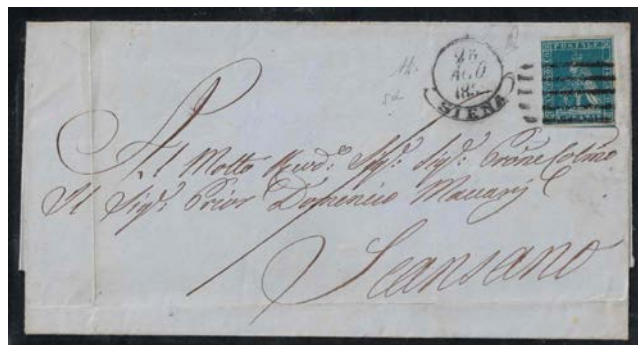 26
AGO
185
SIENA
Al Molto Revd: Sigr: Sigr: Prone Colmo
Il Sigr: Prior Domenico Maccarj
Scansano